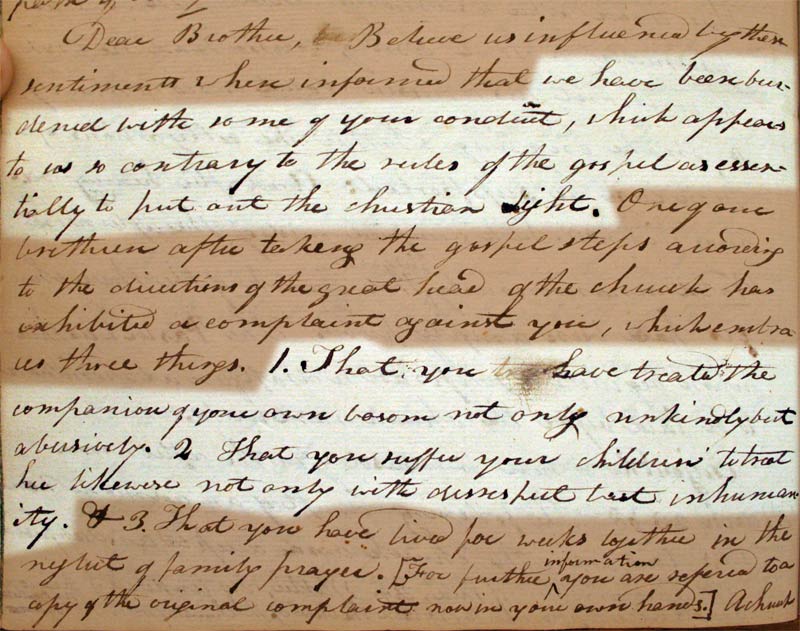 Dear Brother, Believe us influenced by these
sentiments when informed that we have been bur-
dened with some of your conduct, which appears
to us so contrary to the rules of the gospel as essen-
tially to put out the christian light. One of our
brethren after taking the gospel steps according
to the directions of the great head of the church has
exhibited a complaint against you, which embra
ces three things. 1. That you have treated the
companion of your own bosom not only unkindly but
abusively. 2 That you suffer your children to treat
her likewise not only with disrespect but inhuman-
ity. & 3. That you have lived for weeks together in the
neglect of family prayer. [For further information you are refered to a
copy of the original complaint now in your own hands.] A church